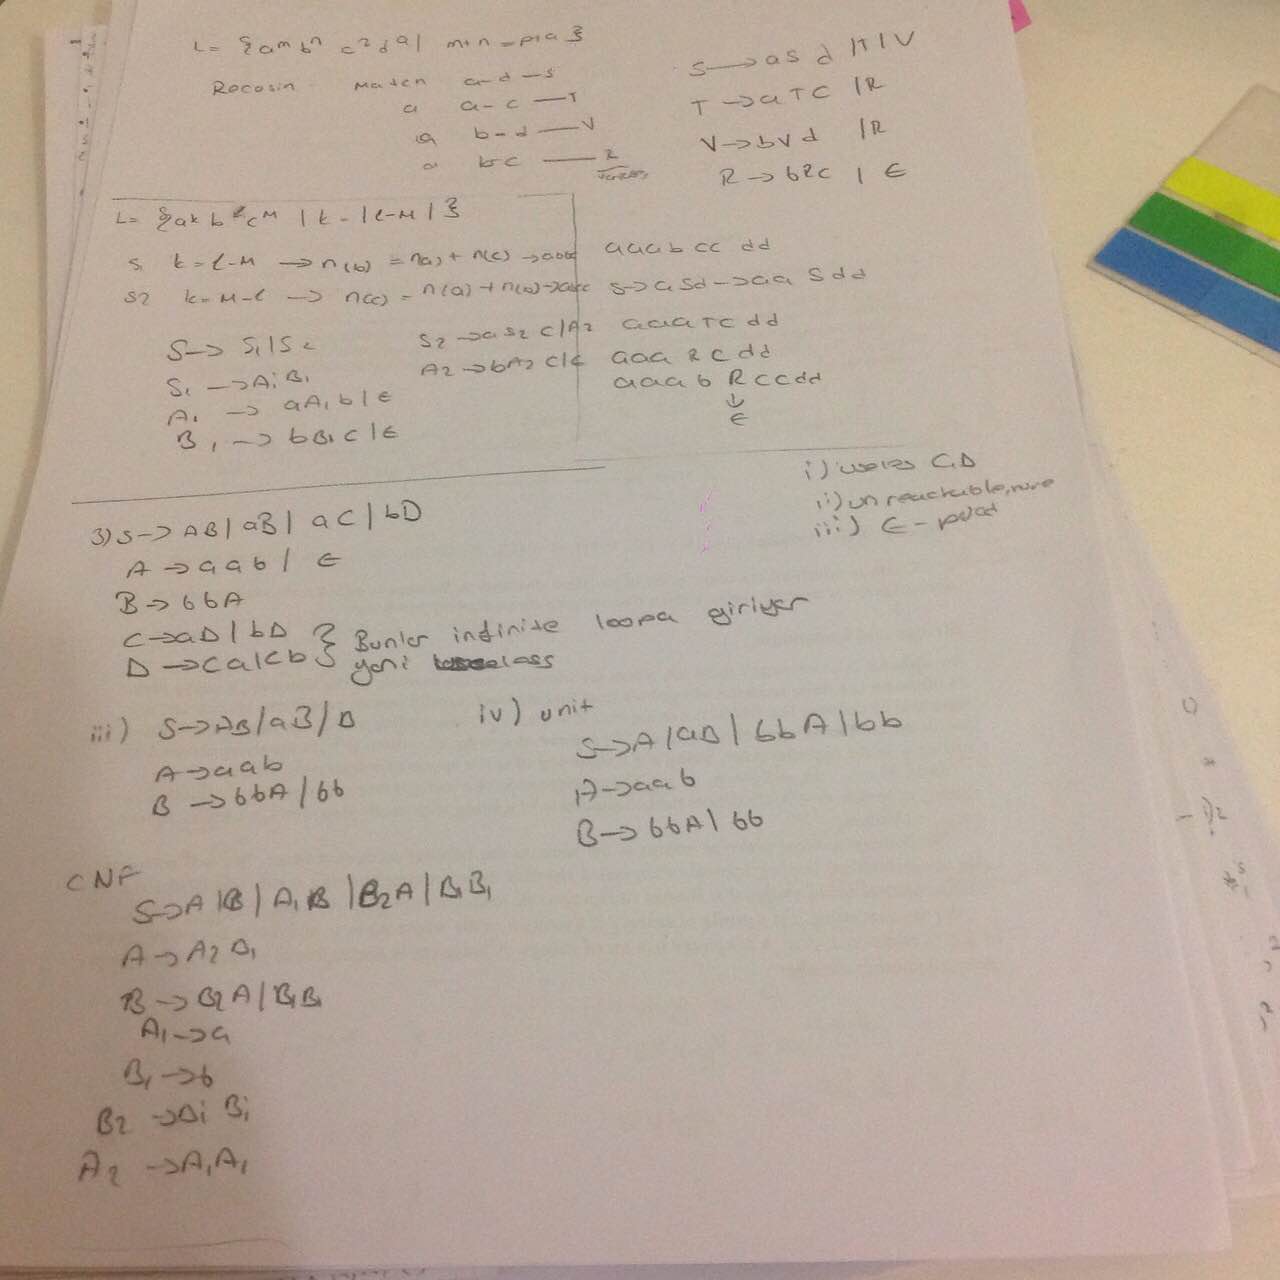 L= {a^m b^n c^p d^q | m+n=p+q }
Match a-d-s
a a-c — T
a b-d — V
a b-c — R
S → a S d |T|V
T → a T C |R
V → b V d |R
R → b R c | ϵ
L= {a^k b^l c^M | k = |l-M| }
S₁ k = l-M → n(b) = n(a) + n(c) →
S2 k = M-l → n(c) = n(a) + n(b) →
S → S₁|S₂
S₁ → A₁B₁
A₁ → aA₁b|ϵ
B₁ → bB₁c|ϵ
S₂ → aS₂c|A₂
A₂ → bA₂c|ϵ
aaabccdd
S → aSd → aaSdd
aaaTcdd
aaaRcdd
aaabRccdd
↓
ϵ
i) C,D
ii) unreachable,
iii) ϵ-prod
3) S → AB| aB| aC | bD
A → aab | ϵ
B → bbA
C → aD | bD } Bunlar infinite loopa giriyor
D → Ca|Cb } yani
iii) S → AB|aB|B
A → aab
B → bbA | bb
iv) unit
S → A|aB| bbA | bb
A → aab
B → bbA | bb
CNF
S → A|B| A₁B | B₂A | B₁B₁
A → A₂B₁
B → B₂A | B₁B₁
A₁ → a
B₁ → b
B₂ → B₁B₁
A₂ → A₁A₁